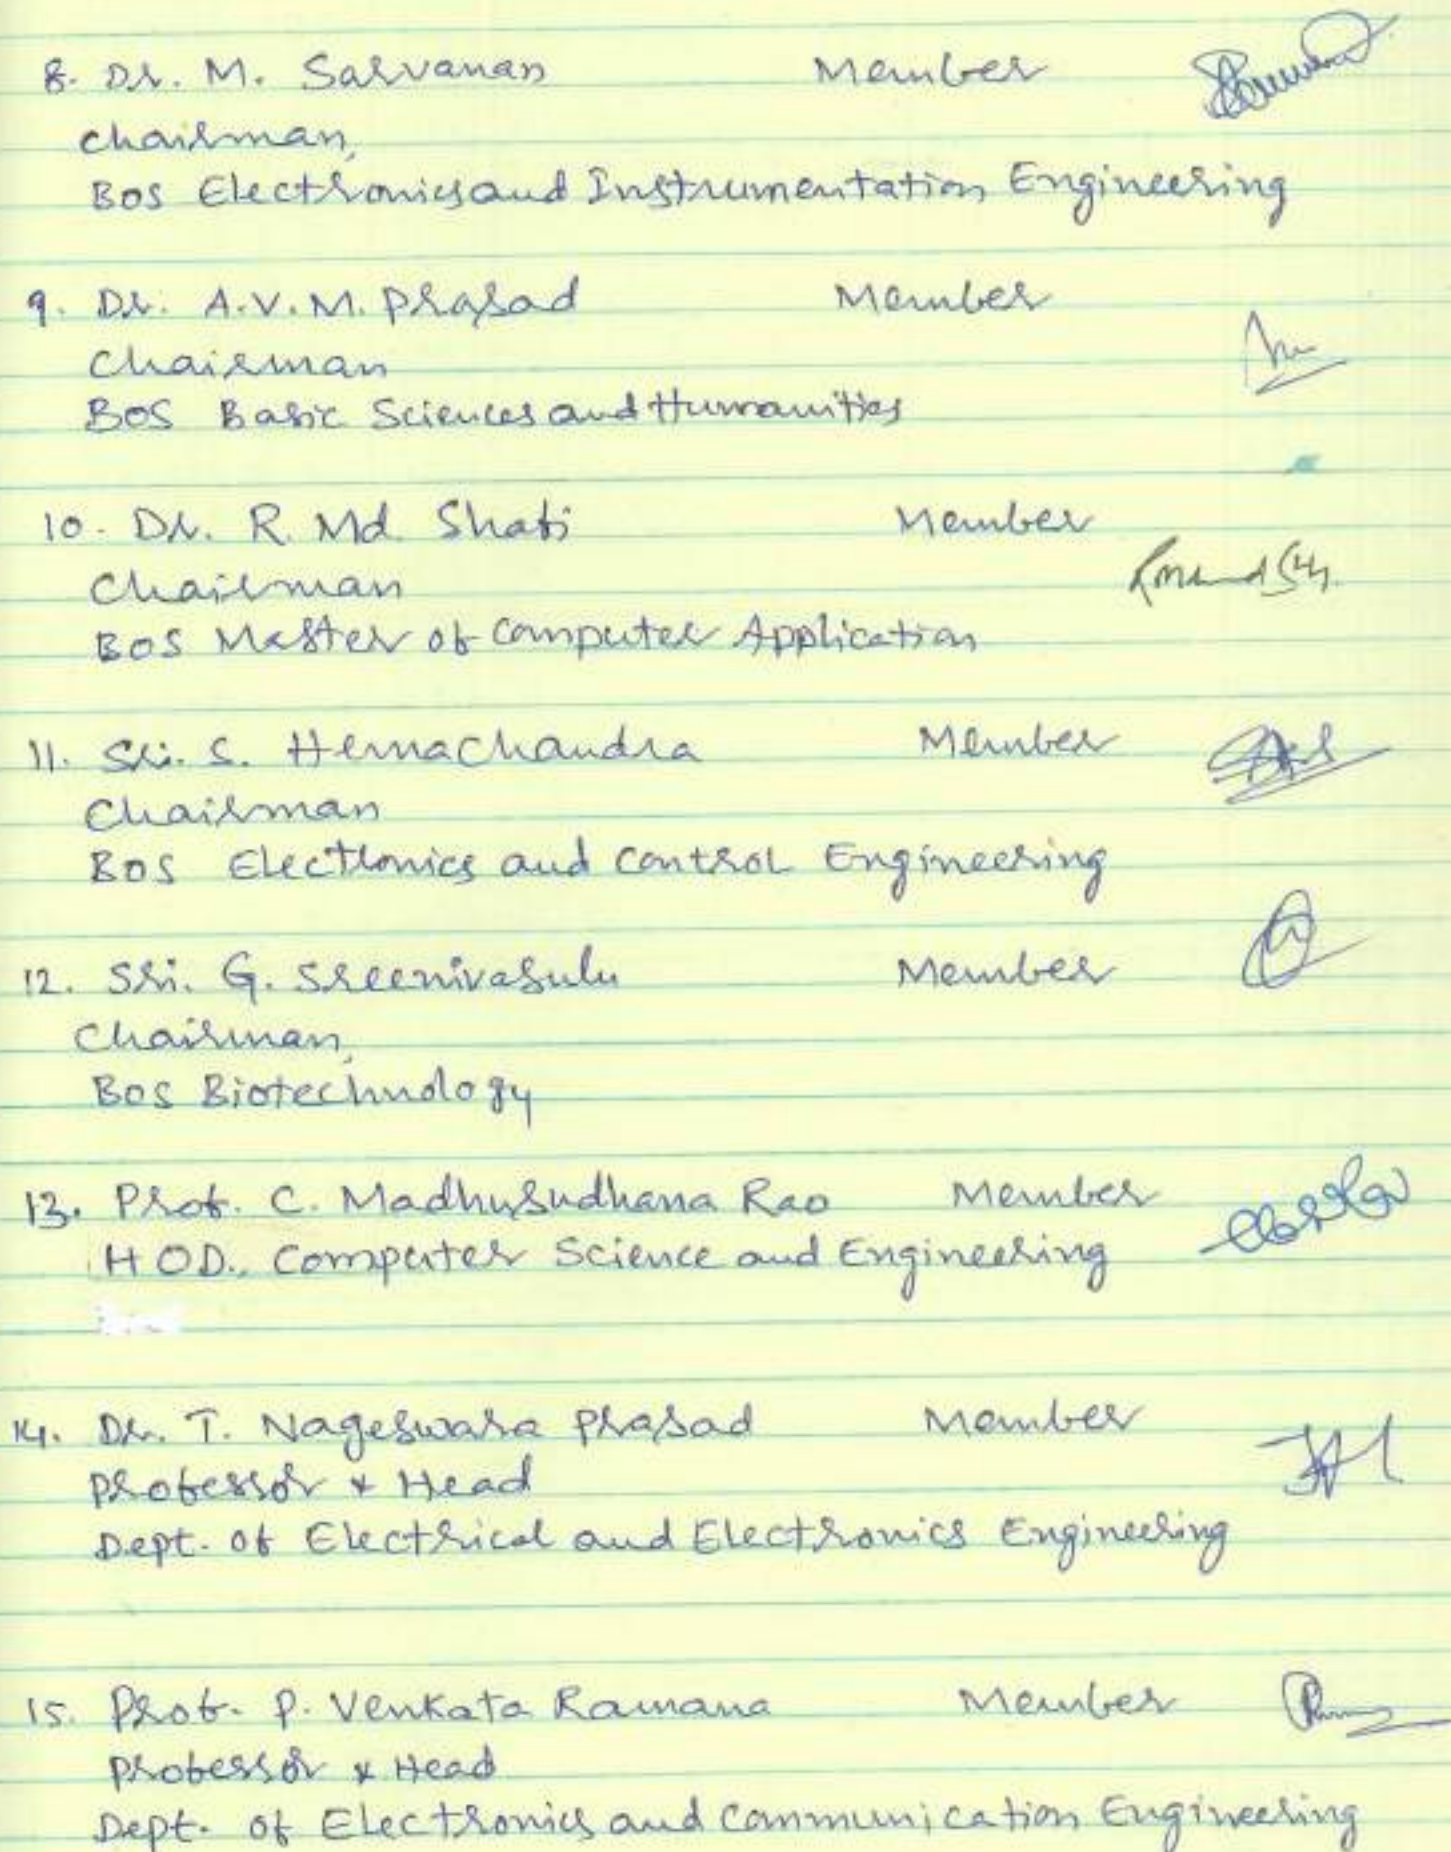 8. Dr. M. Sarvanan Member
Chairman,
BOS Electronics and Instrumentation Engineering
9. Dr. A.V.M. Prasad Member
Chairman
BOS Basic Sciences and Humanities
10. Dr. R. Md. Shafi Member
Chairman
BOS Master of Computer Application
11. Sri. S. Hemachandra Member
Chairman
BOS Electronics and Control Engineering
12. Sri. G. Sreenivasulu Member
Chairman,
BOS Biotechnology
13. Prof. C. Madhusudhana Rao Member
HOD., Computer Science and Engineering
14. Dr. T. Nageswara Prasad Member
Professor & Head
Dept. of Electrical and Electronics Engineering
15. Prof. P. Venkata Ramana Member
Professor & Head
Dept. of Electronics and Communication Engineering